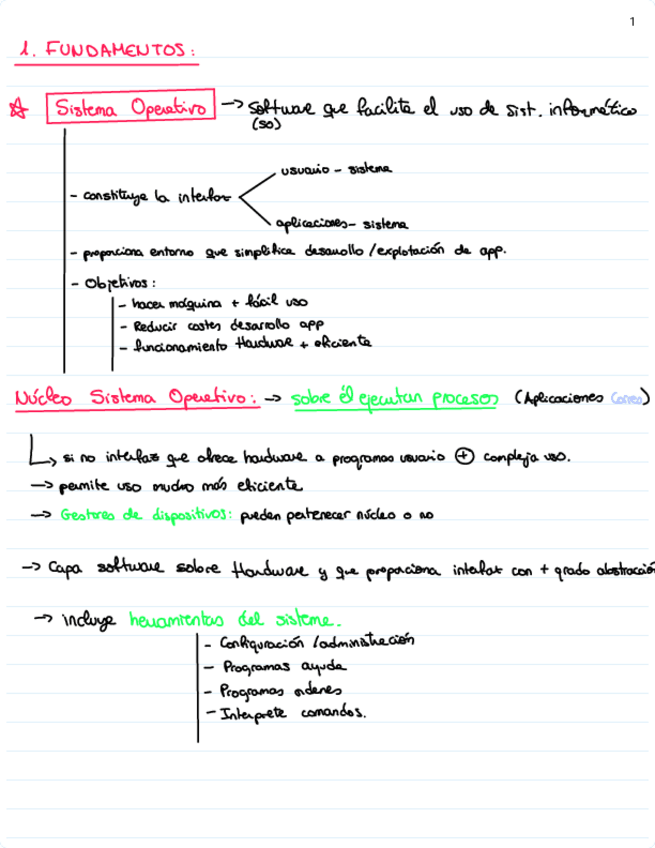 1
1. FUNDAMENTOS:
Sistema Operativo → software que facilita el uso de sist. informático
(SO)
usuario - sistema
- constituye la interfaz
aplicaciones - sistema
- proporciona entorno que simplifica desarrollo / explotación de app.
- Objetivos:
- hacer máquina + fácil uso
- Reducir costes desarrollo app
- funcionamiento Hardware + eficiente
Núcleo Sistema Operativo: → sobre él ejecutan procesos (Aplicaciones Correo)
si no interfaz que ofrece hardware a programas usuario ⊕ compleja uso.
→ permite uso mucho más eficiente
→ Gestores de dispositivos: pueden pertenecer núcleo o no
→ Capa software sobre Hardware y que proporciona interfaz con + grado abstracción
→ incluye herramientas del sistema.
- Configuración / administración
- Programas ayuda
- Programas ordenes
- Interprete comandos.